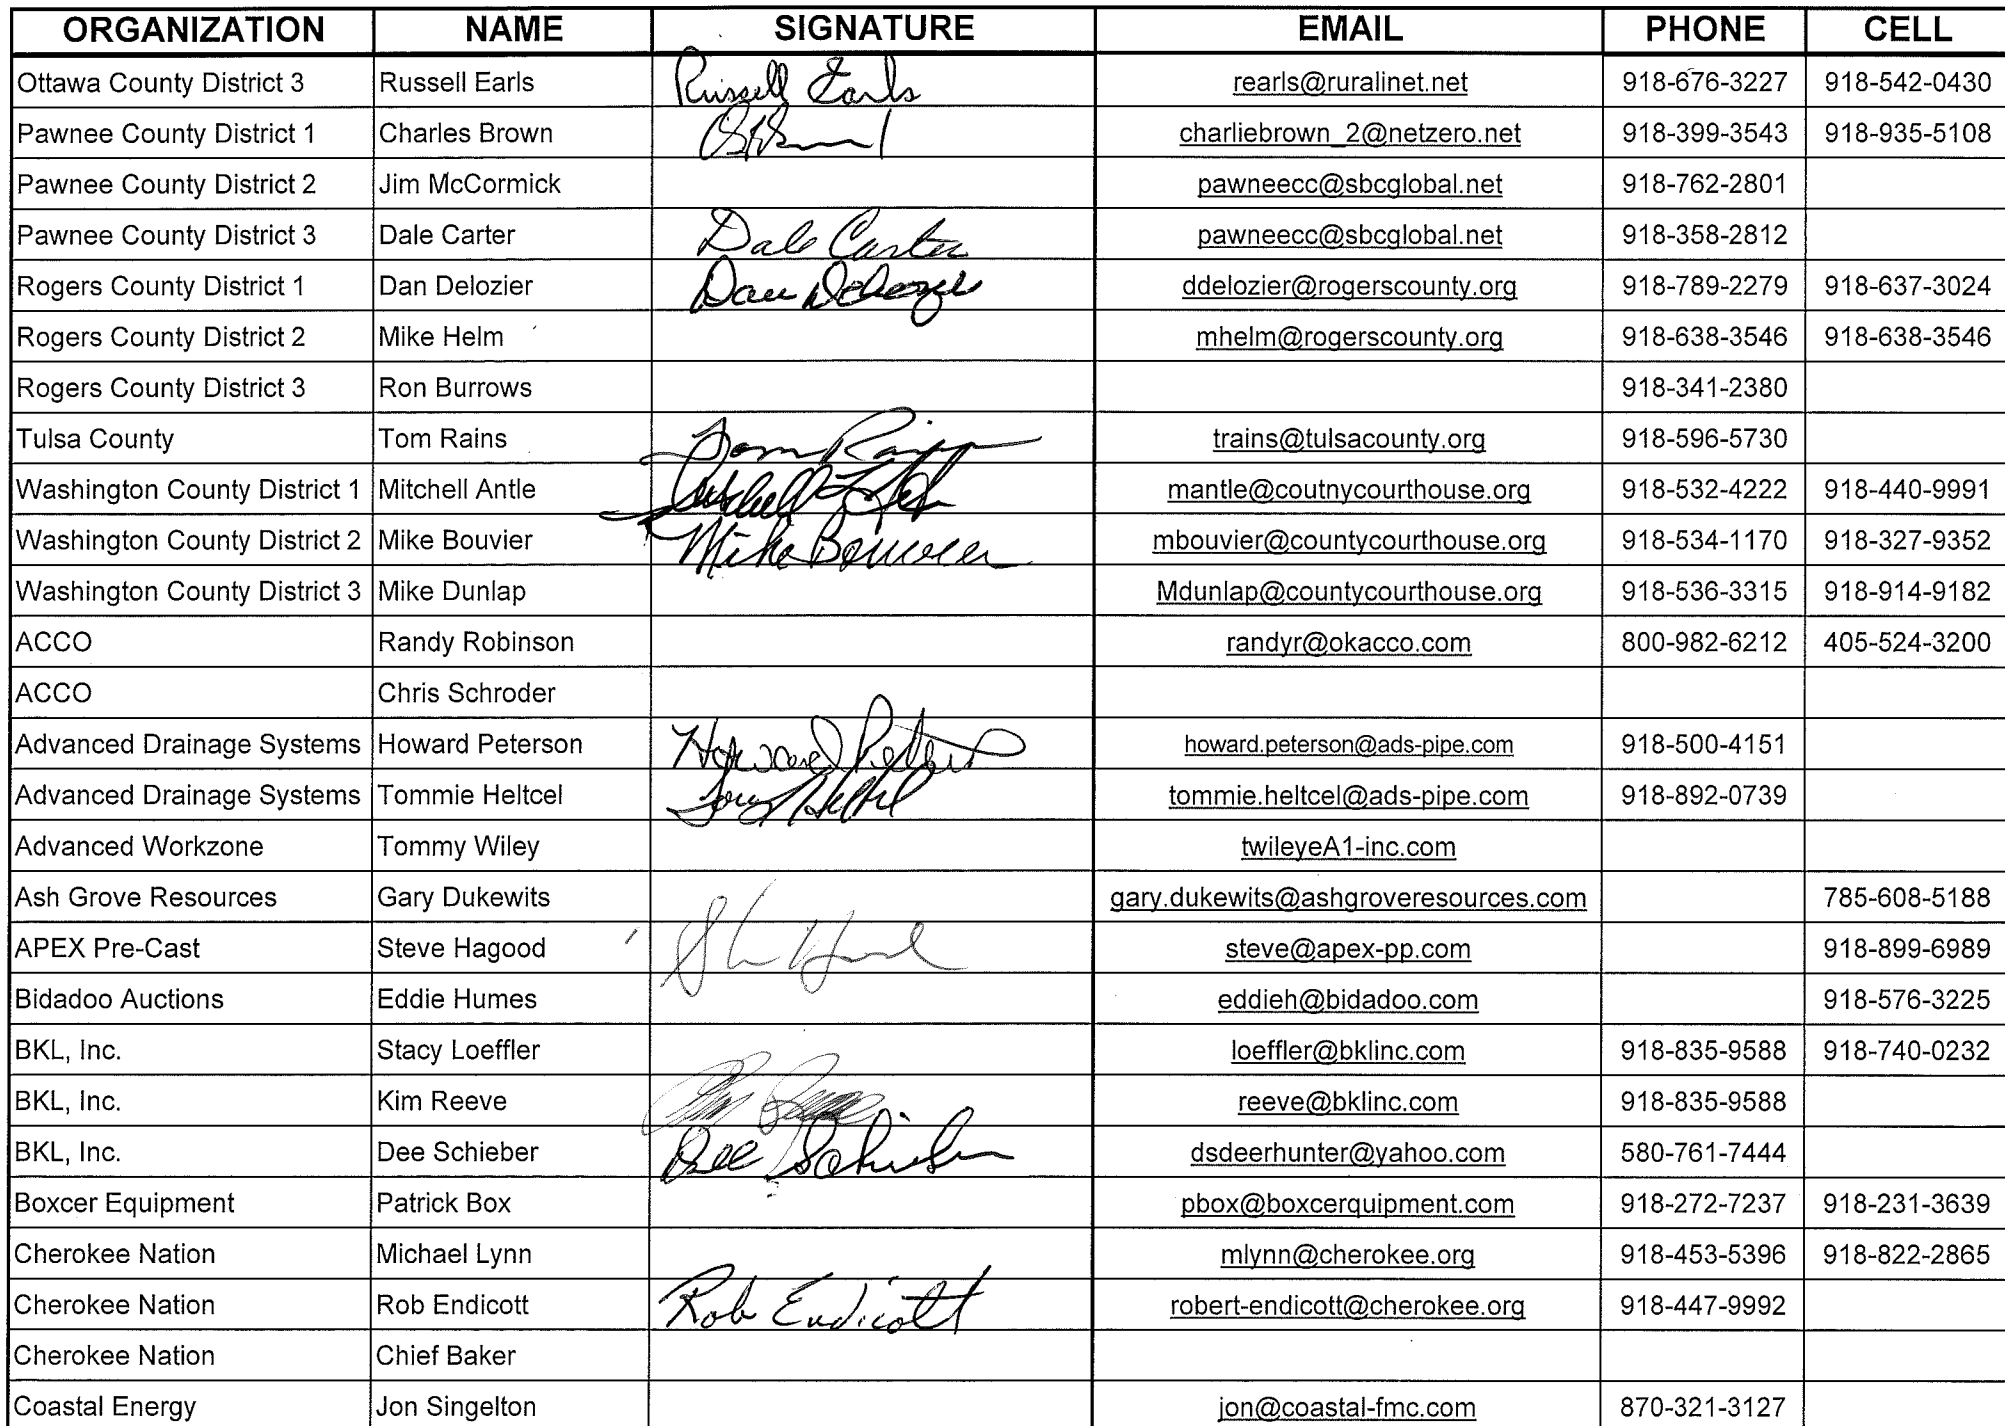 ORGANIZATION NAME SIGNATURE EMAIL PHONE CELL
Ottawa County District 3 Russell Earls Russell Earls rearls@ruralinet.net 918-676-3227 918-542-0430
Pawnee County District 1 Charles Brown charliebrown_2@netzero.net 918-399-3543 918-935-5108
Pawnee County District 2 Jim McCormick pawneecc@sbcglobal.net 918-762-2801
Pawnee County District 3 Dale Carter Dale Carter pawneecc@sbcglobal.net 918-358-2812
Rogers County District 1 Dan Delozier Dan Delozier ddelozier@rogerscounty.org 918-789-2279 918-637-3024
Rogers County District 2 Mike Helm mhelm@rogerscounty.org 918-638-3546 918-638-3546
Rogers County District 3 Ron Burrows 918-341-2380
Tulsa County Tom Rains Tom Rains trains@tulsacounty.org 918-596-5730
Washington County District 1 Mitchell Antle mantle@coutnycourthouse.org 918-532-4222 918-440-9991
Washington County District 2 Mike Bouvier Mike Bouvier mbouvier@countycourthouse.org 918-534-1170 918-327-9352
Washington County District 3 Mike Dunlap Mdunlap@countycourthouse.org 918-536-3315 918-914-9182
ACCO Randy Robinson randyr@okacco.com 800-982-6212 405-524-3200
ACCO Chris Schroder
Advanced Drainage Systems Howard Peterson Howard Peterson howard.peterson@ads-pipe.com 918-500-4151
Advanced Drainage Systems Tommie Heltcel tommie.heltcel@ads-pipe.com 918-892-0739
Advanced Workzone Tommy Wiley twileyeA1-inc.com
Ash Grove Resources Gary Dukewits gary.dukewits@ashgroveresources.com 785-608-5188
APEX Pre-Cast Steve Hagood steve@apex-pp.com 918-899-6989
Bidadoo Auctions Eddie Humes eddieh@bidadoo.com 918-576-3225
BKL, Inc. Stacy Loeffler loeffler@bklinc.com 918-835-9588 918-740-0232
BKL, Inc. Kim Reeve reeve@bklinc.com 918-835-9588
BKL, Inc. Dee Schieber Dee Schieber dsdeerhunter@yahoo.com 580-761-7444
Boxcer Equipment Patrick Box pbox@boxcerquipment.com 918-272-7237 918-231-3639
Cherokee Nation Michael Lynn mlynn@cherokee.org 918-453-5396 918-822-2865
Cherokee Nation Rob Endicott Rob Endicott robert-endicott@cherokee.org 918-447-9992
Cherokee Nation Chief Baker
Coastal Energy Jon Singelton jon@coastal-fmc.com 870-321-3127